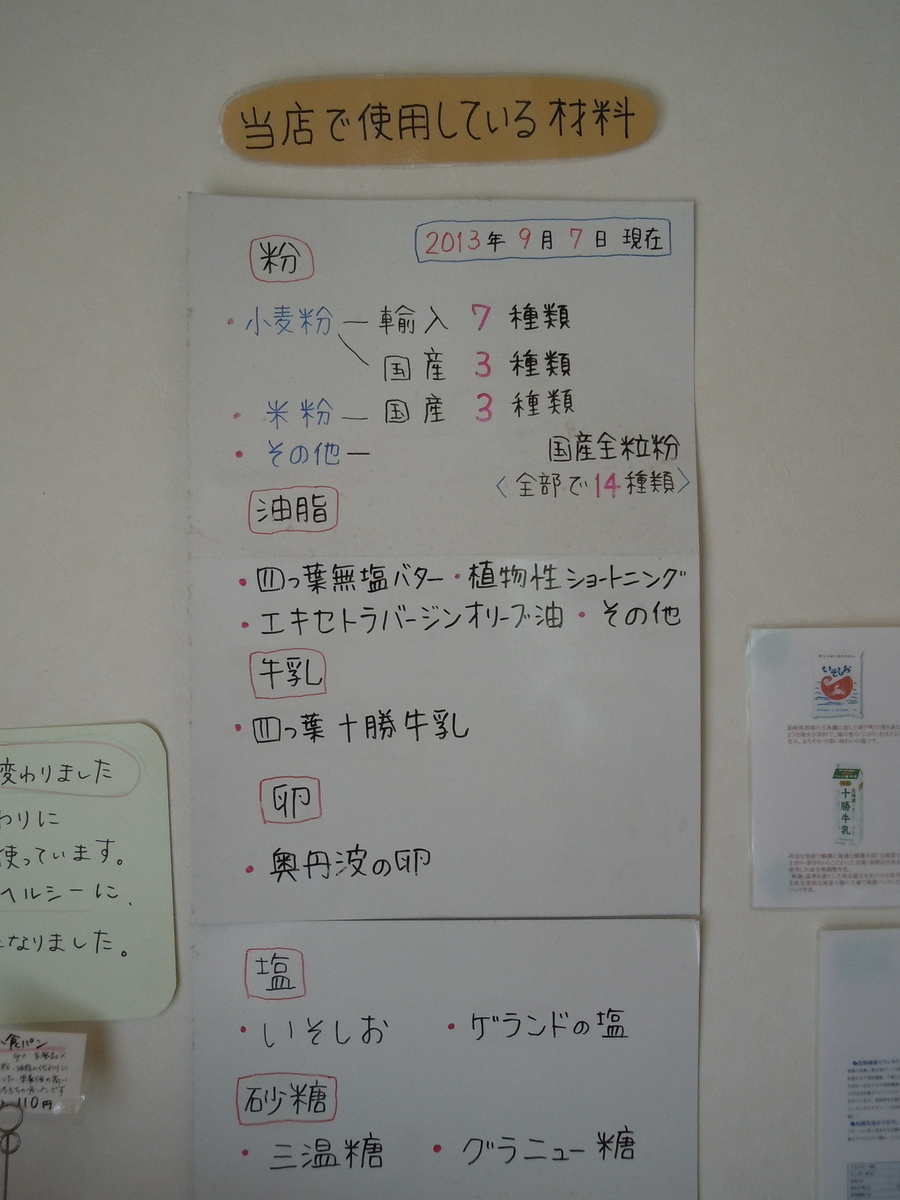 当店で使用している材料
2013年 9月 7日 現在
粉
・小麦粉 ― 輸入 7 種類
国産 3 種類
・米粉 ― 国産 3 種類
・その他 ― 国産全粒粉
〈全部で14種類〉
油脂
・四つ葉無塩バター ・植物性ショートニング
・エキセトラバージンオリーブ油 ・その他
牛乳
・四つ葉 十勝牛乳
卵
・奥丹波の卵
塩
・いそしお ・ゲランドの塩
砂糖
・三温糖 ・グラニュー糖
変わりました
わりに
使っています。
ヘルシーに、
になりました。
食パン
110円
いそしお
十勝牛乳